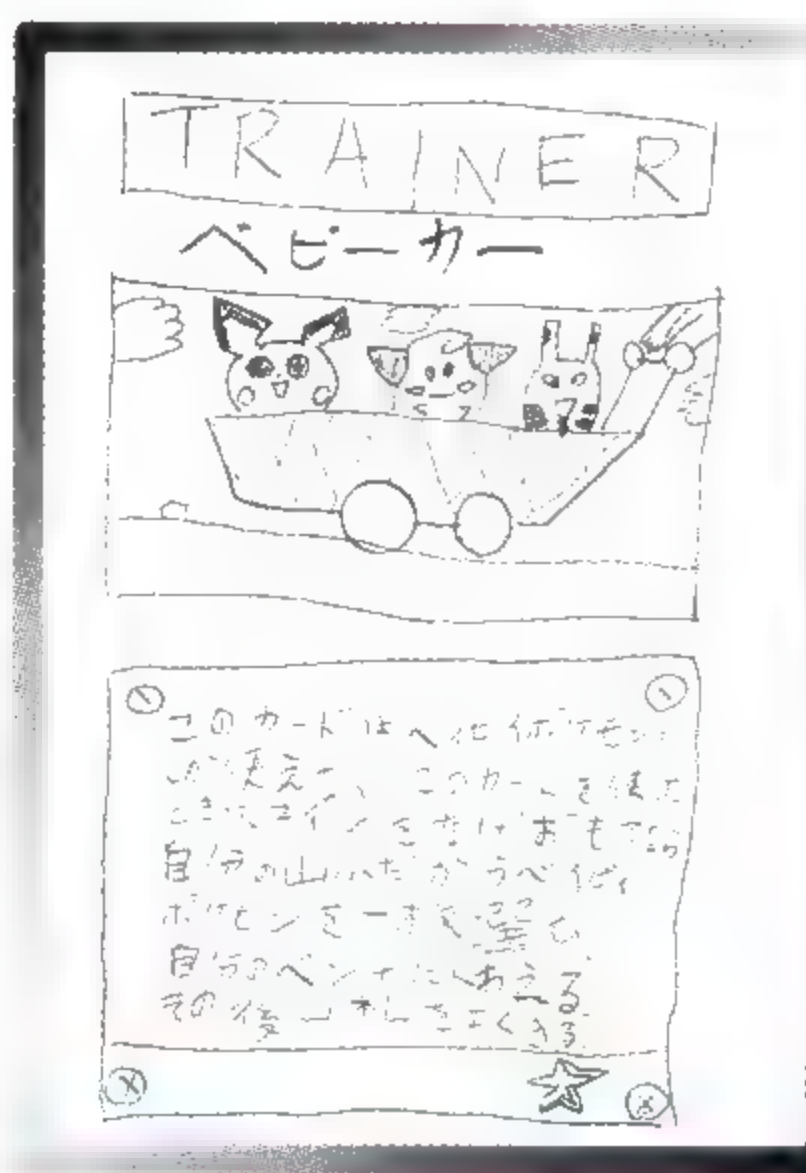 TRAINER
ベビーカー
このカードはベビィポケモン
が使える。このカードを使た
ときにコインをなげおもてなら
自分の山ふだからベイビィ
ポケモンを一まい選び
自分のベンチにくわえる
その後山札をよくきる